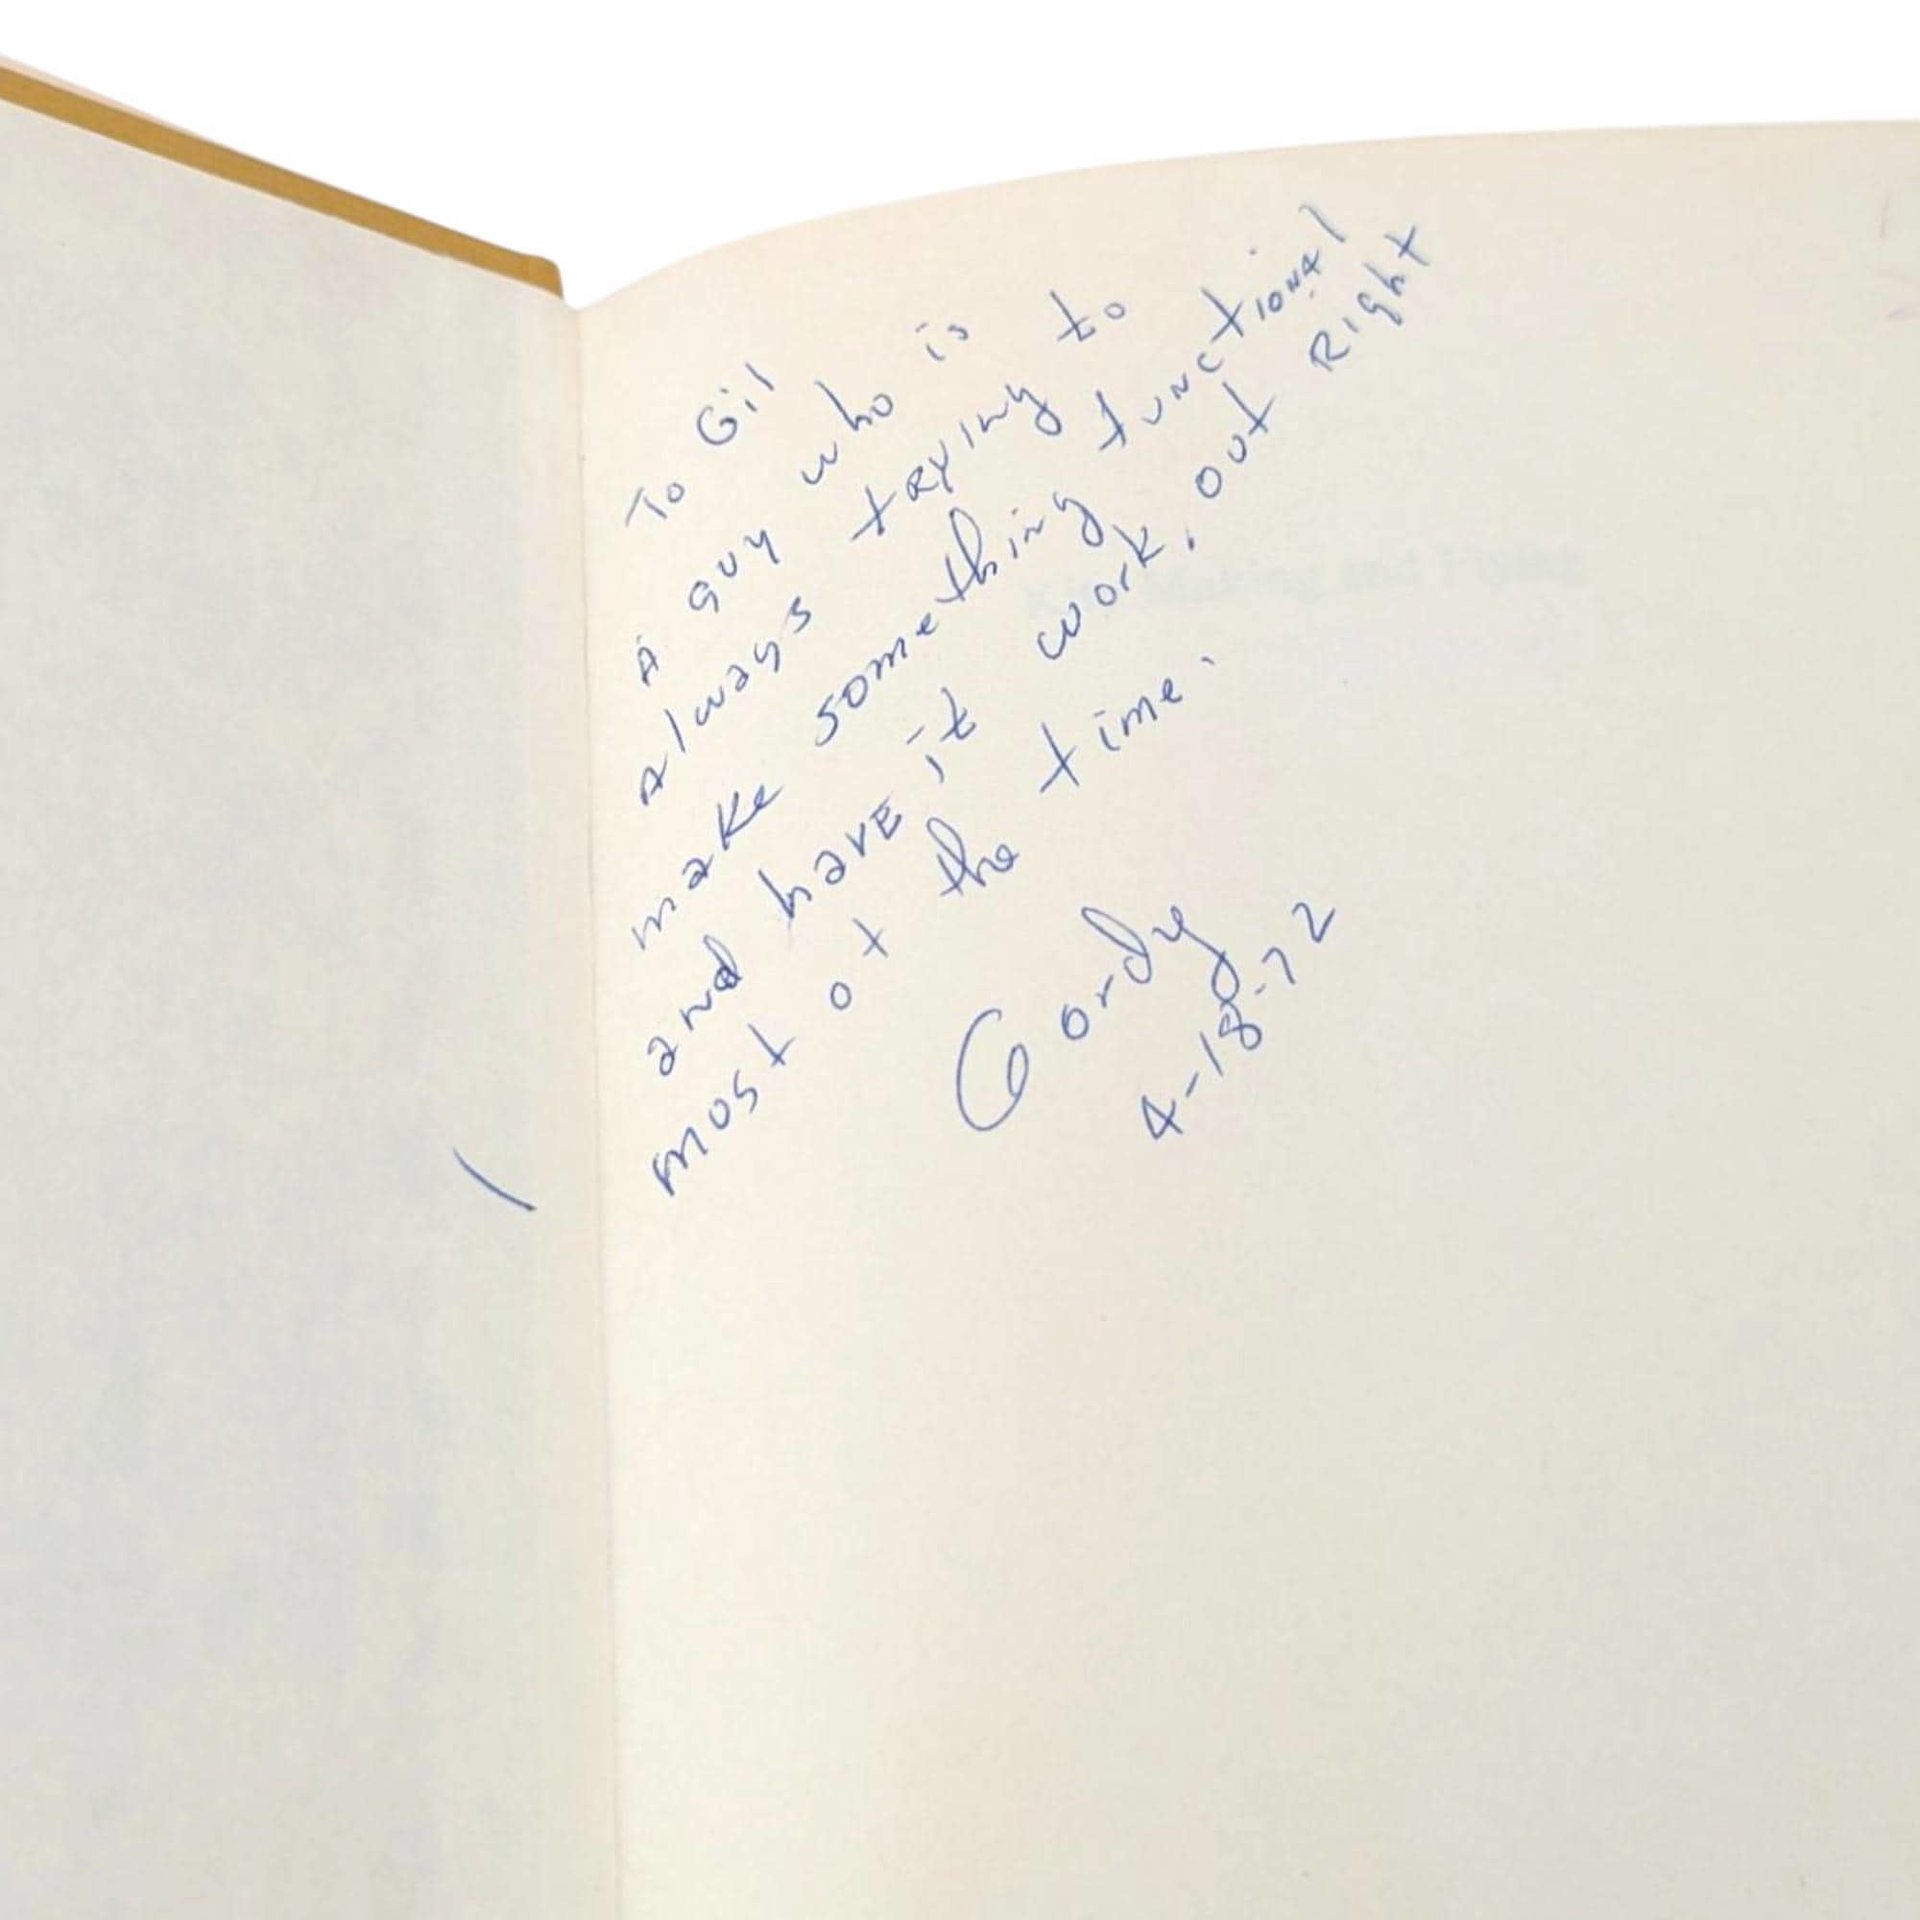 To Gil
A guy who is
Always trying to
make something functional
and have it work. out Right
most of the time.
Gordy
4-18-72
Kite Making and Flying